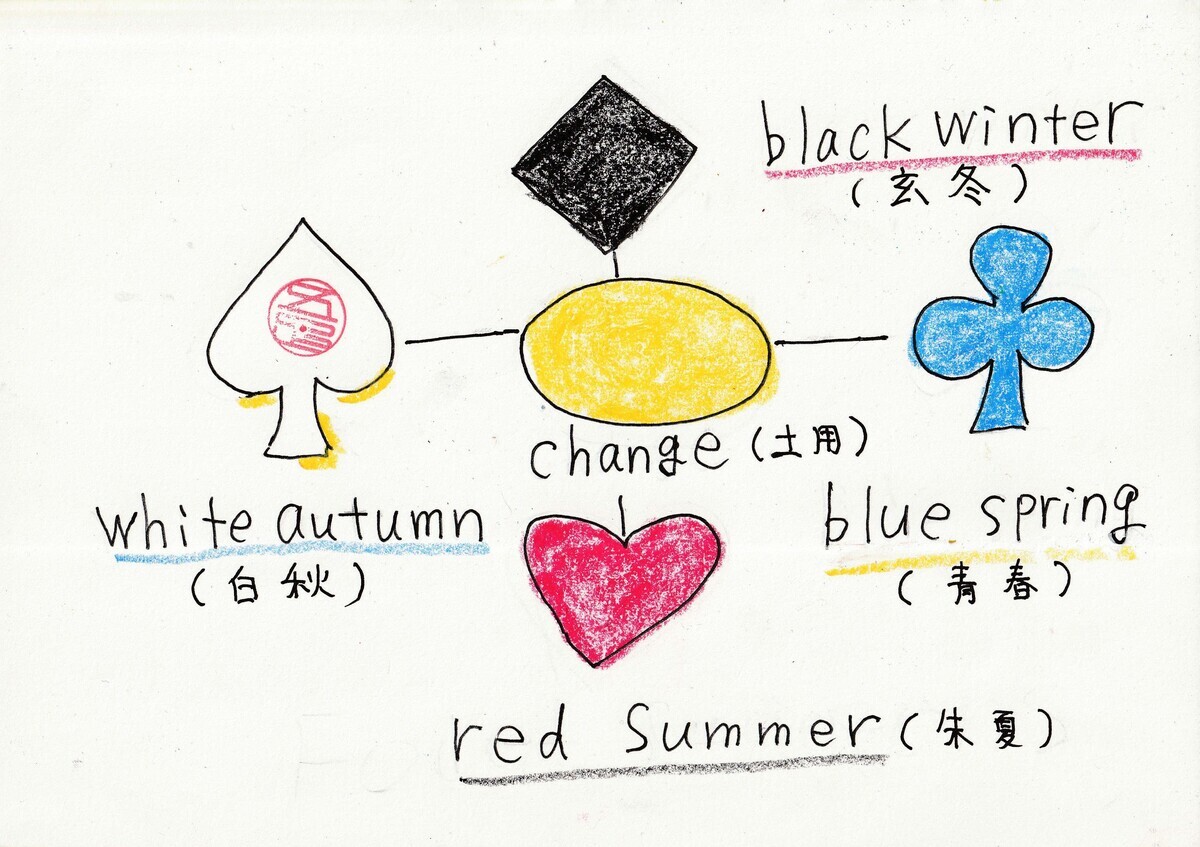 black winter
(玄冬)
change (土用)
white autumn
(白秋)
blue spring
(青春)
red Summer (朱夏)